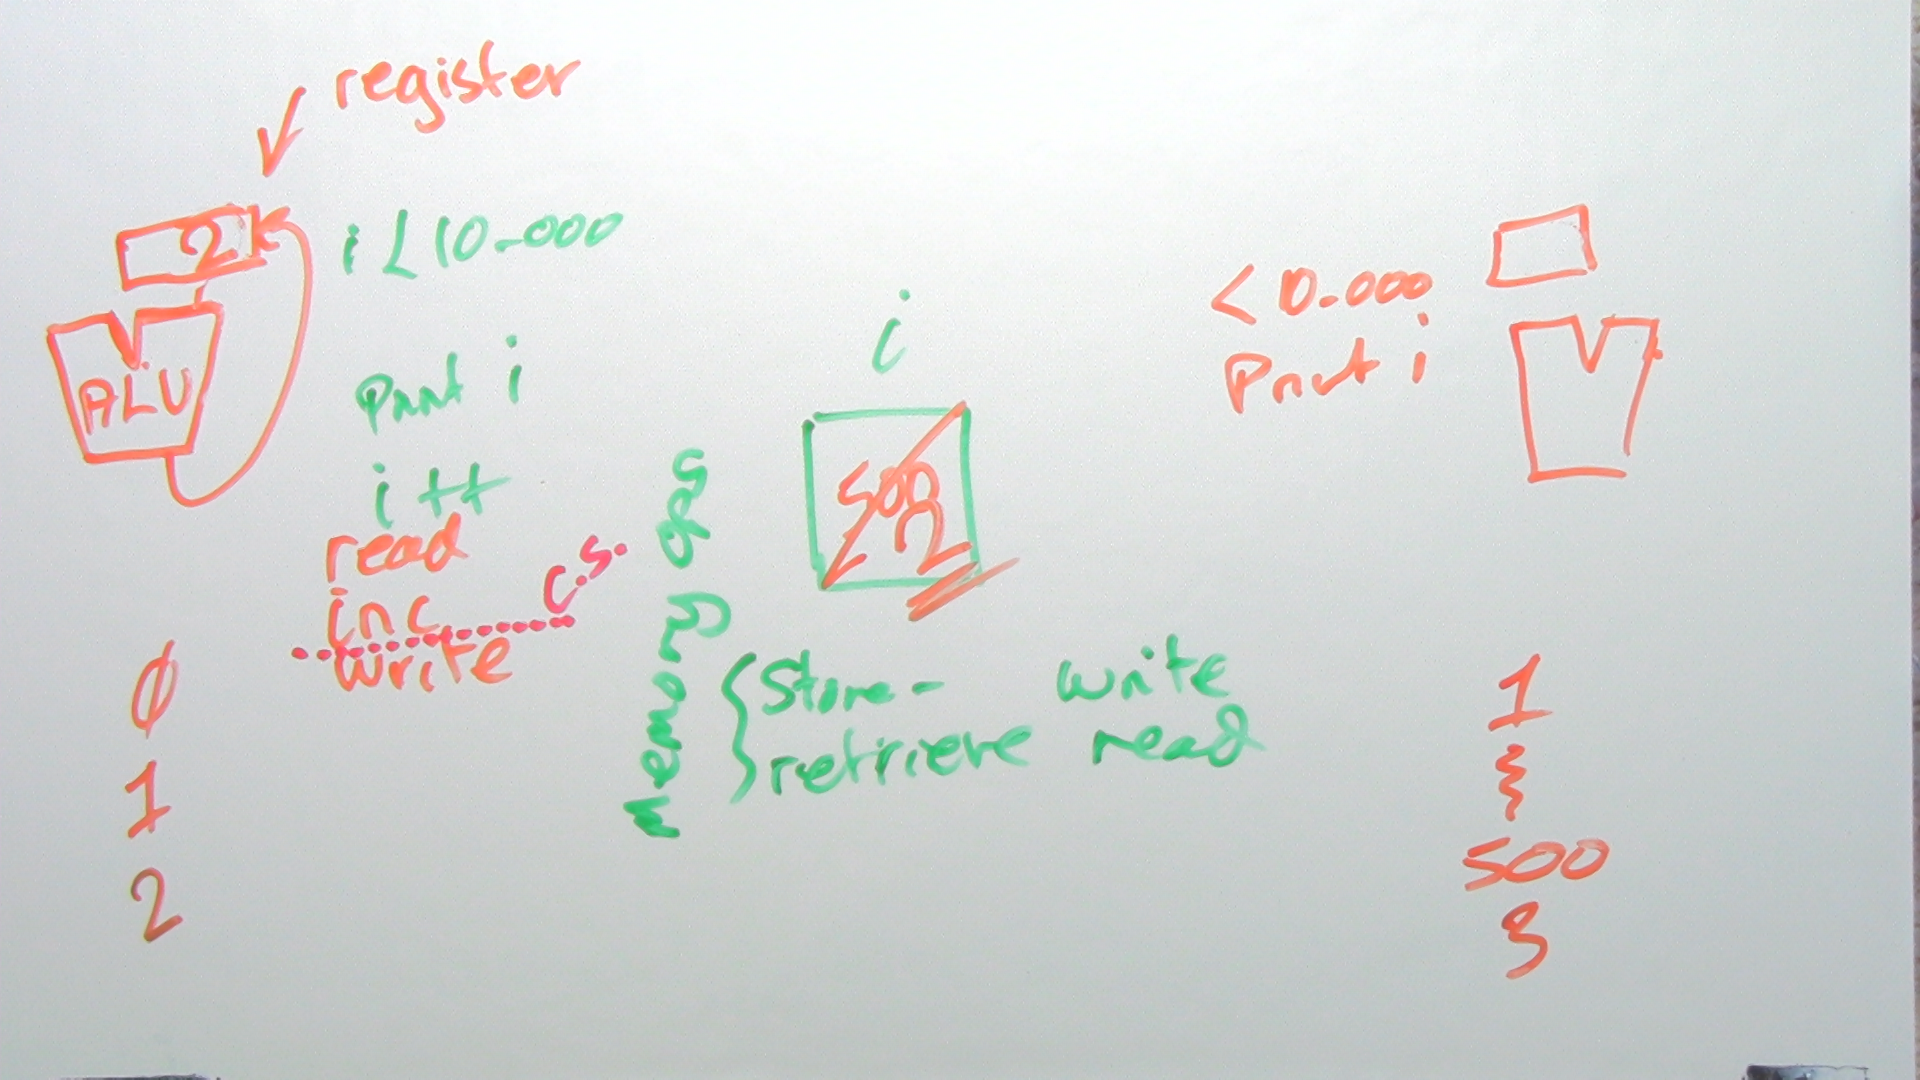 register
2
i < 10.000
ALU
print i
i ++
read
inc
c.s.
write
0
1
2
i
500
2
Memory ops
Store - write
retrieve read
< 10.000
Print i
1
500
3